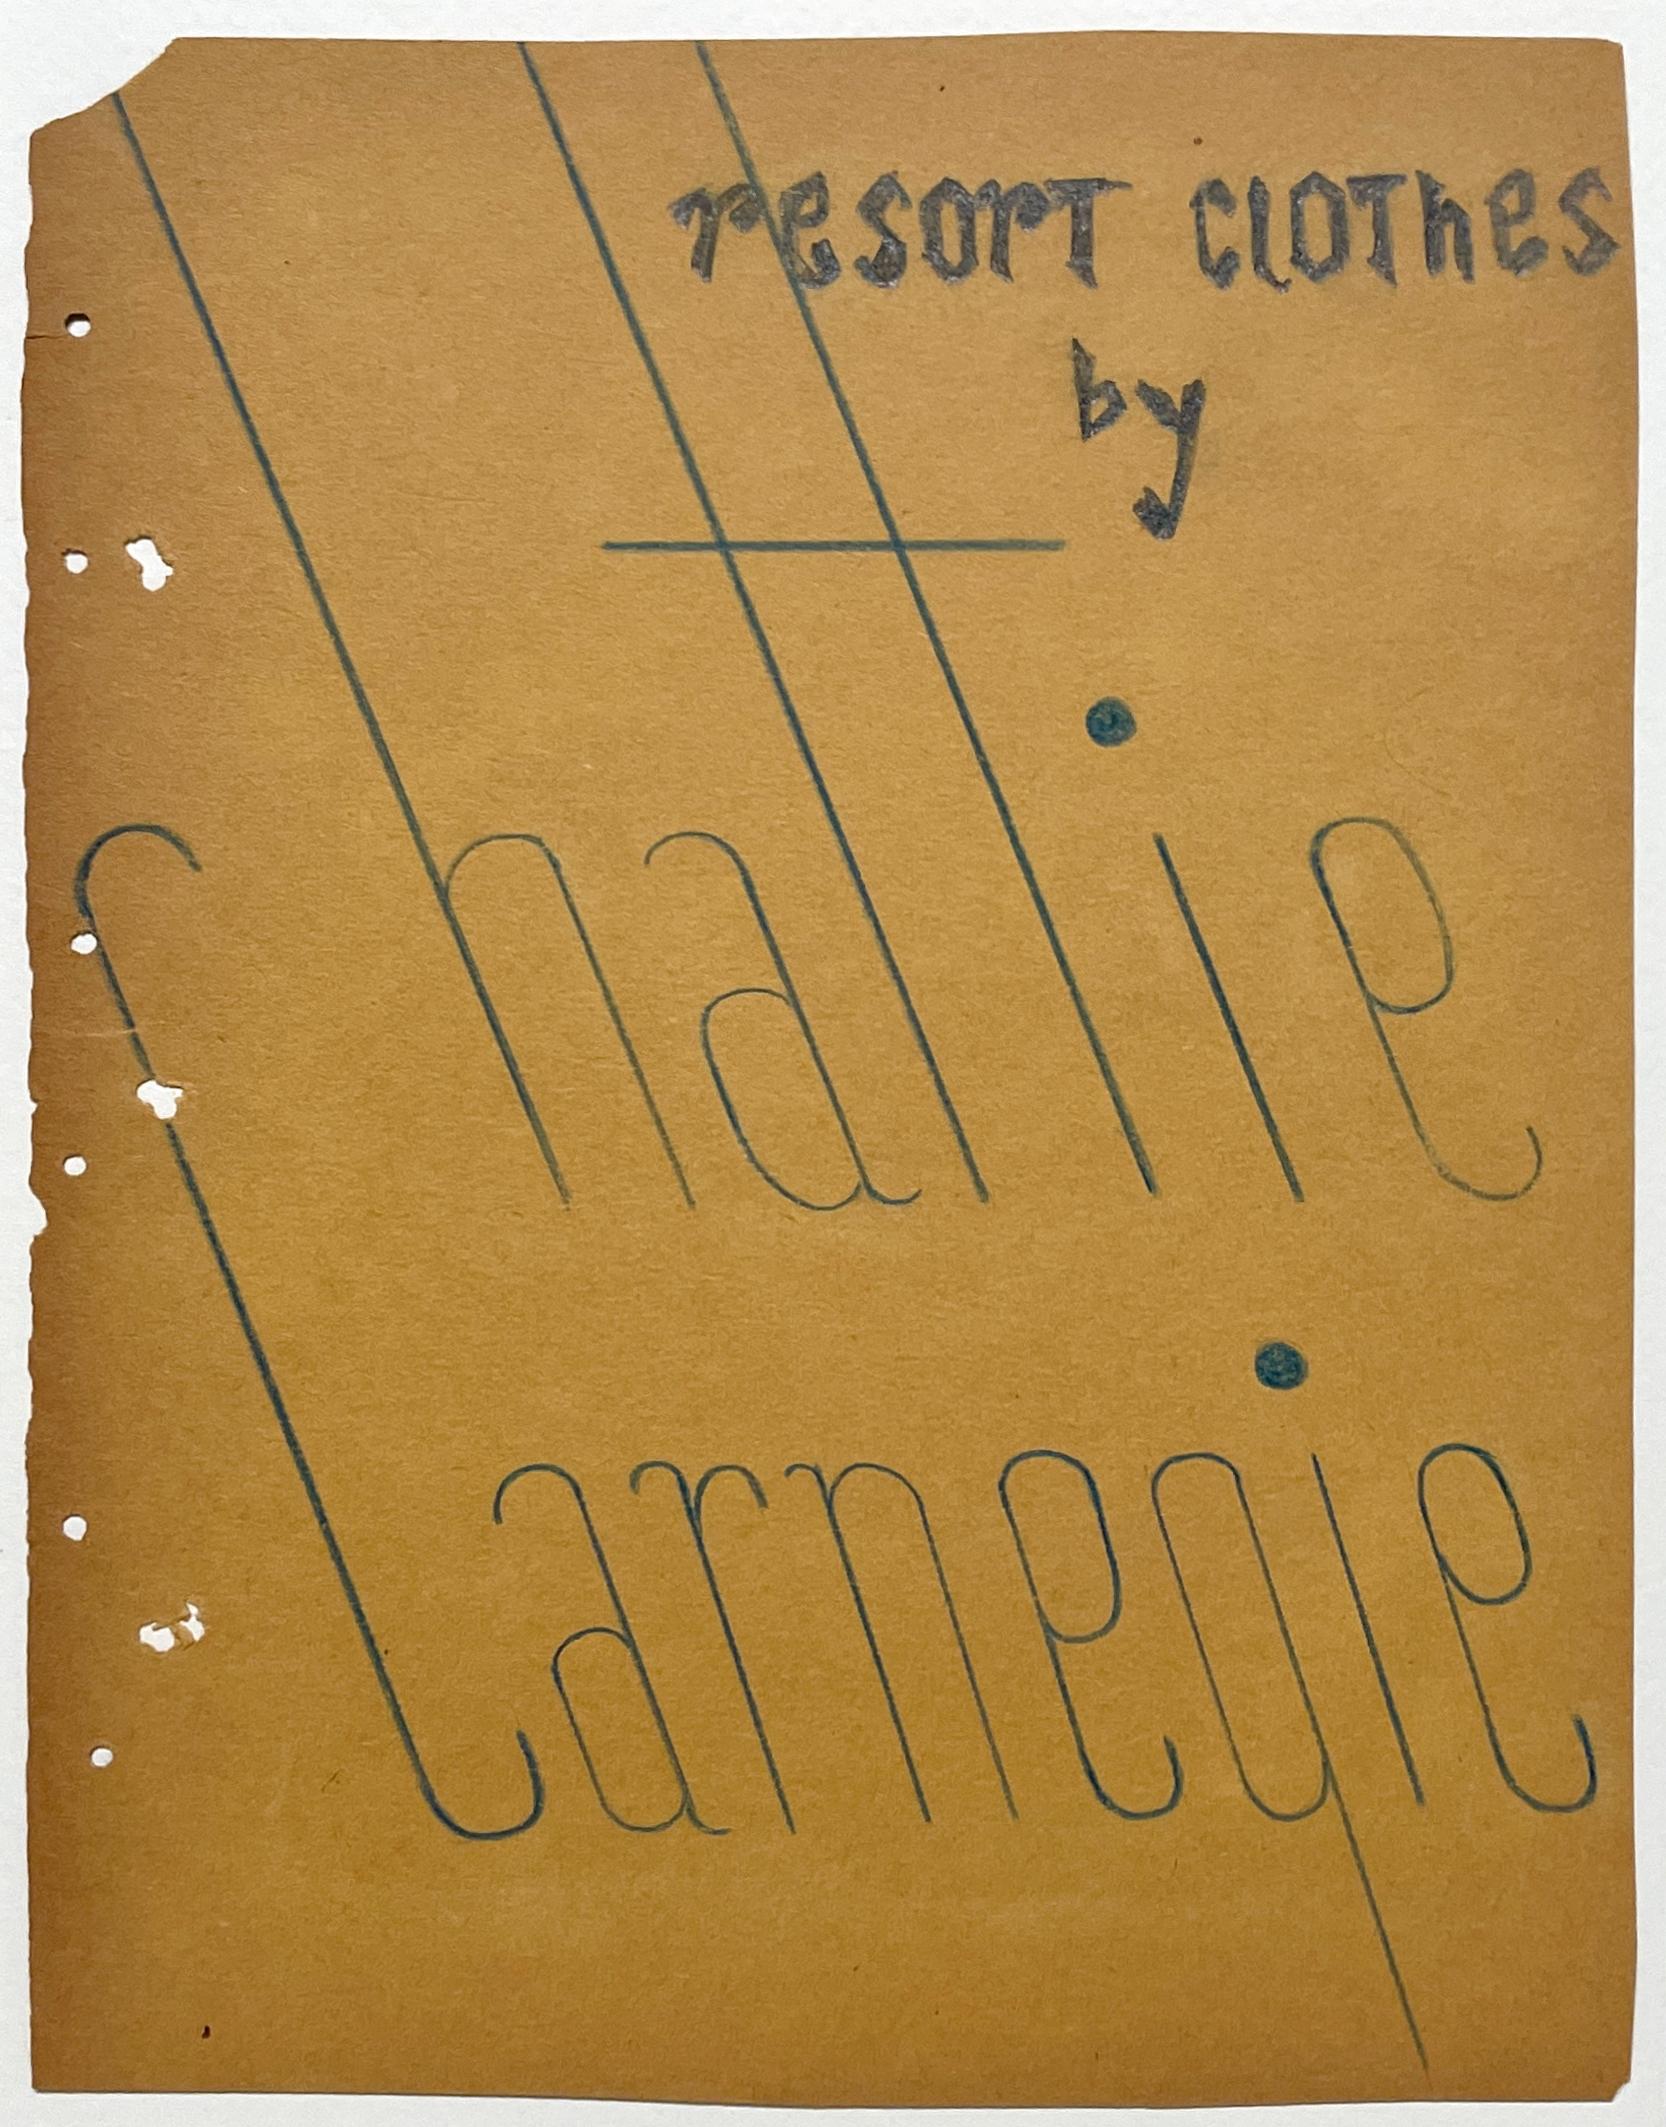 resort clothes
by
hattie
Carnegie